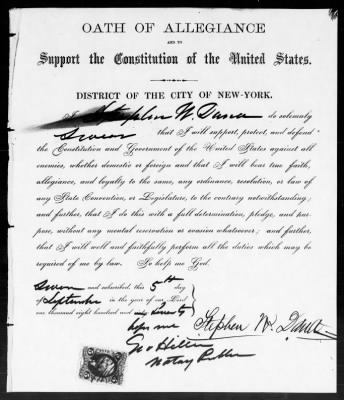 OATH OF ALLEGIANCE
AND TO
Support the Constitution of the United States.
DISTRICT OF THE CITY OF NEW-YORK.
I, Stephen W. Dana do solemnly
Swear that I will support, protect, and defend
the Constitution and Government of the United States against all
enemies, whether domestic or foreign and that I will bear true faith,
allegiance, and loyalty to the same, any ordinance, resolution, or law of
any State Convention, or Legislature, to the contrary notwithstanding;
and further, that I do this with a full determination, pledge, and pur-
pose, without any mental reservation or evasion whatsoever; and further,
that I will well and faithfully perform all the duties which may be
required of me by law. So help me God.
Sworn and subscribed, this 5th day
of September in the year of our Lord
one thousand eight hundred and Seventy
before me
Stephen W. Dana
Geo Hillin
Notary Public